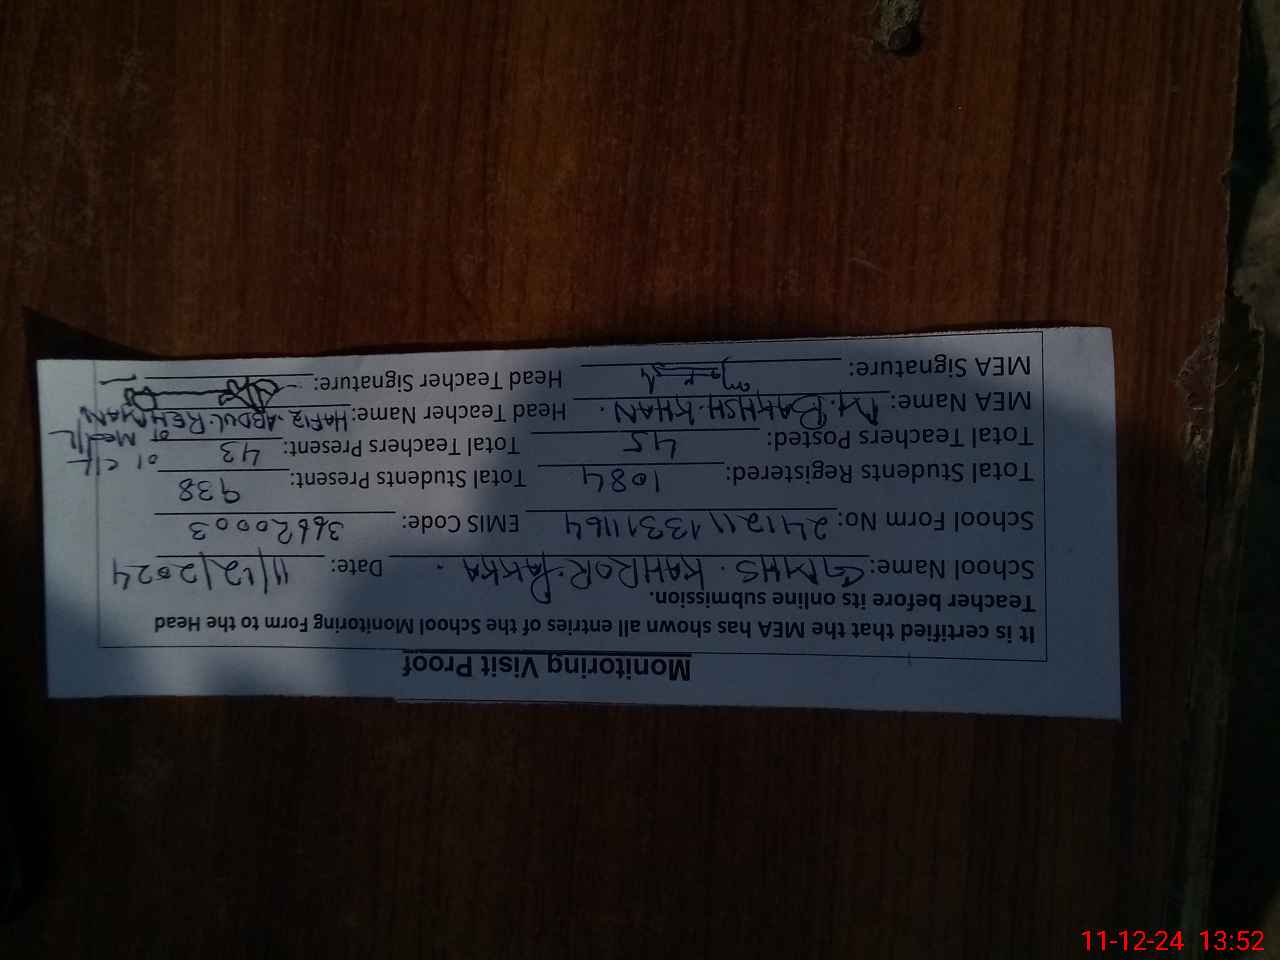 Monitoring Visit Proof
It is certified that the MEA has shown all entries of the School Monitoring Form to the Head
Teacher before its online submission.
School Name: GMHS. KAHROR. PAKKA. Date: 11/12/2024
School Form No: 2412111331164 EMIS Code: 36620003
Total Students Registered: 1084 Total Students Present: 938
Total Teachers Posted: 45 Total Teachers Present: 43 01 C/L
01 Med/L
MEA Name: M. BAKHSH. KHAN. Head Teacher Name: HAFIZ ABDUL REHMAN
MEA Signature: Head Teacher Signature:
11-12-24 13:52